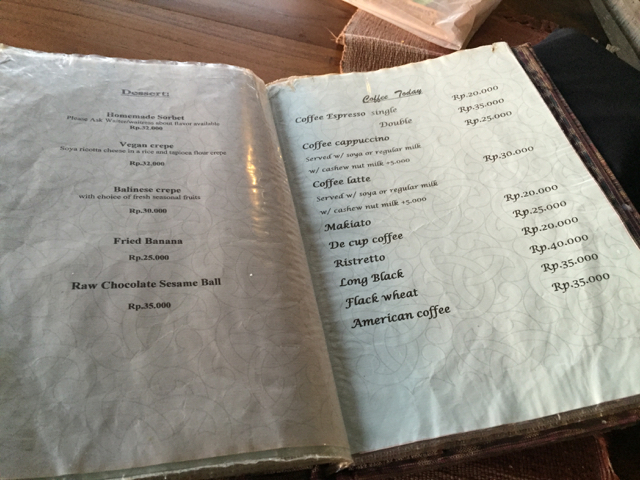 Dessert:
Homemade Sorbet
Please Ask Waiter/waitress about flavor available
Rp.32.000
Vegan crepe
Soya ricotta cheese in a rice and tapioca flour crepe
Rp.32.000
Balinese crepe
with choice of fresh seasonal fruits
Rp.30.000
Fried Banana
Rp.25.000
Raw Chocolate Sesame Ball
Rp.35.000
Coffee Today
Coffee Espresso single Rp.20.000
Double Rp.35.000
Coffee cappuccino Rp.25.000
Served w/ soya or regular milk
w/ cashew nut milk +5.000
Coffee latte Rp.30.000
Served w/ soya or regular milk
w/ cashew nut milk +5.000
Makiato Rp.20.000
De cup coffee Rp.25.000
Ristretto Rp.20.000
Long Black Rp.40.000
Flack wheat Rp.35.000
American coffee Rp.35.000